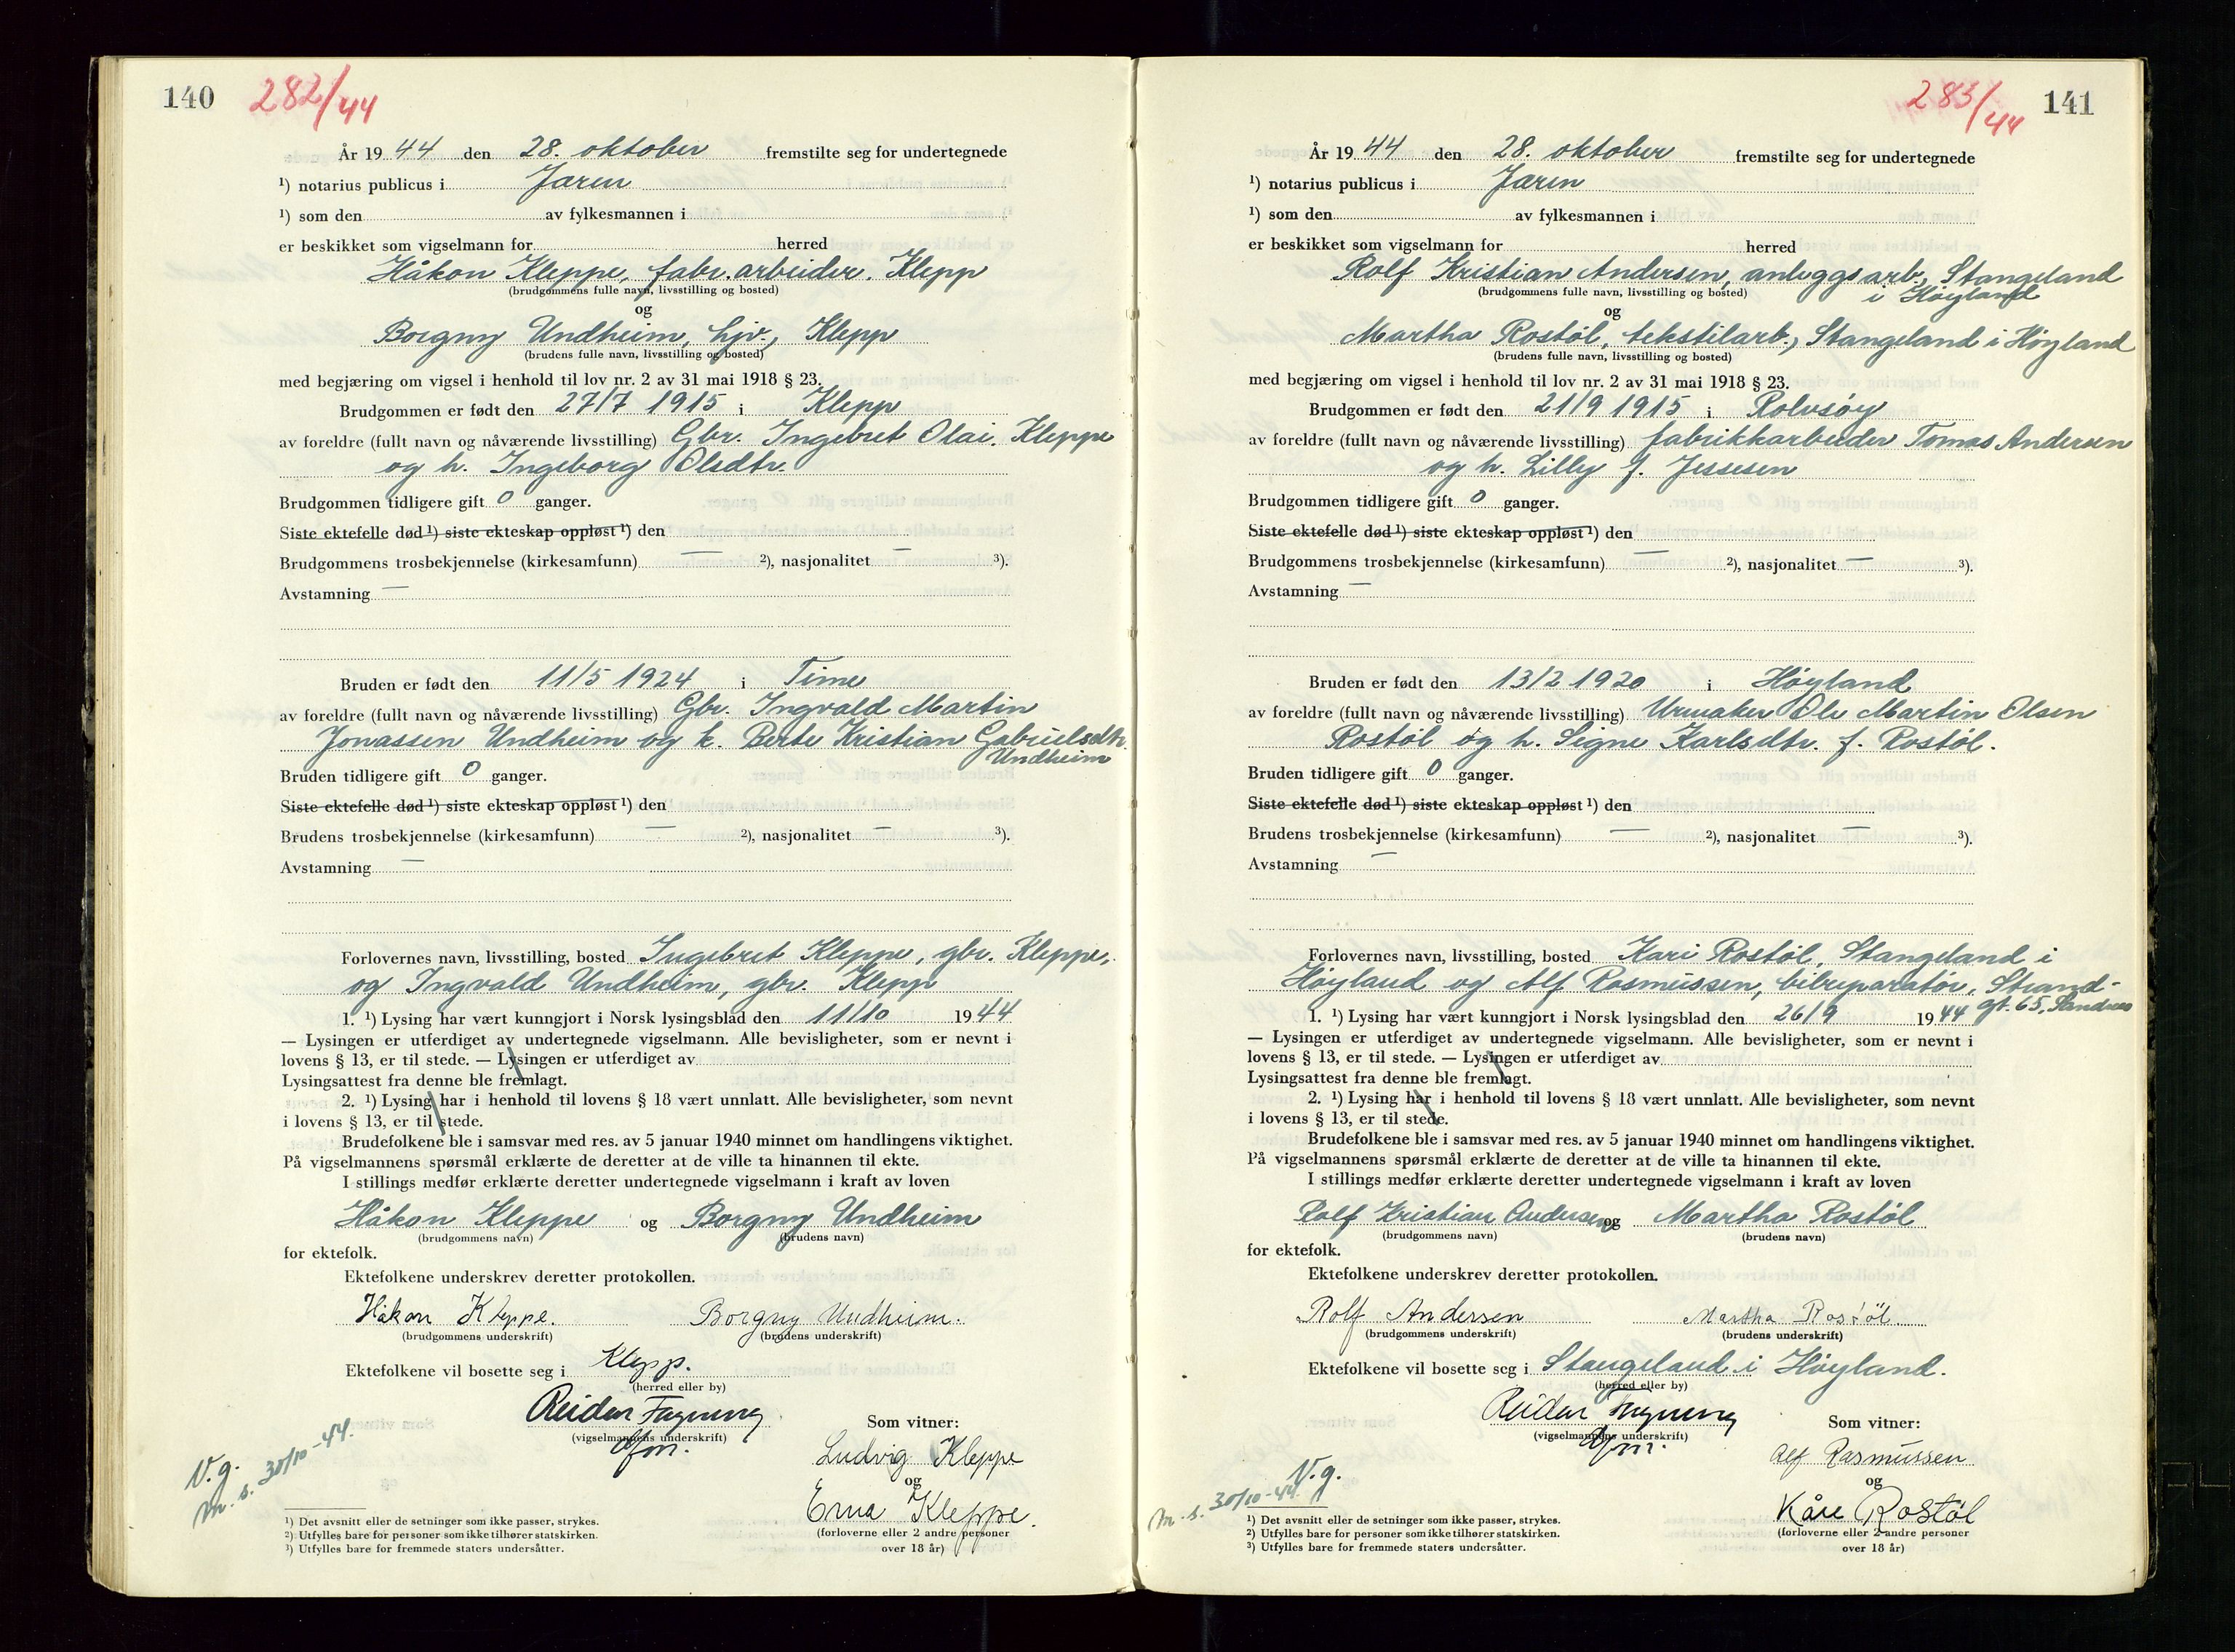 140 282/44
År 19 44 den 28. oktober fremstilte seg for undertegnede
¹) notarius publicus i Jæren
¹) som den av fylkesmannen i
er beskikket som vigselmann for herred
Håkon Kleppe, fabr.arbeider. Klepp
(brudgommens fulle navn, livsstilling og bosted)
og
Borgny Undheim, hjv., Klepp
(brudens fulle navn, livsstilling og bosted)
med begjæring om vigsel i henhold til lov nr. 2 av 31 mai 1918 § 23.
Brudgommen er født den 27/7 1915 i Klepp
av foreldre (fullt navn og nåværende livsstilling) Gbr. Ingebret Olai. Kleppe
og h. Ingeborg Olsdtr.
Brudgommen tidligere gift 0 ganger.
Siste ektefelle død ¹) siste ekteskap oppløst ¹) den
Brudgommens trosbekjennelse (kirkesamfunn) — ²), nasjonalitet — ³).
Avstamning —
Bruden er født den 11/5 1924 i Time
av foreldre (fullt navn og nåværende livsstilling) Gbr. Ingvald Martin
Jonassen Undheim og h. Berte Kristian Gabrielsdtr.
Undheim
Bruden tidligere gift 0 ganger.
Siste ektefelle død ¹) siste ekteskap oppløst ¹) den
Brudens trosbekjennelse (kirkesamfunn) — ²), nasjonalitet — ³).
Avstamning —
Forlovernes navn, livsstilling, bosted Ingebret Kleppe, gbr. Kleppe,
og Ingvald Undheim, gbr. Klepp
1. ¹) Lysing har vært kunngjort i Norsk lysingsblad den 11/10 19 44
— Lysingen er utferdiget av undertegnede vigselmann. Alle bevisligheter, som er nevnt i
lovens § 13, er til stede. — Lysingen er utferdiget av
Lysingsattest fra denne ble fremlagt.
2. ¹) Lysing har i henhold til lovens § 18 vært unnlatt. Alle bevisligheter, som nevnt
i lovens § 13, er til stede.
Brudefolkene ble i samsvar med res. av 5 januar 1940 minnet om handlingens viktighet.
På vigselmannens spørsmål erklærte de deretter at de ville ta hinannen til ekte.
I stillings medfør erklærte deretter undertegnede vigselmann i kraft av loven
Håkon Kleppe og Borgny Undheim
(brudgommens navn) (brudens navn)
for ektefolk.
Ektefolkene underskrev deretter protokollen.
Håkon Kleppe. Borgny Undheim.
(brudgommens underskrift) (brudens underskrift)
Ektefolkene vil bosette seg i Klepp.
(herred eller by)
Reidar Fagnæng
(vigselmannens underskrift)
dfm.
Som vitner:
Ludvig Kleppe
og
Erna Kleppe.
(forloverne eller 2 andre personer
over 18 år)
V.g.
m.s. 30/10-44.
¹) Det avsnitt eller de setninger som ikke passer, strykes.
²) Utfylles bare for personer som ikke tilhører statskirken.
³) Utfylles bare for fremmede staters undersåtter.
283/44 141
År 19 44 den 28. oktober fremstilte seg for undertegnede
¹) notarius publicus i Jæren
¹) som den av fylkesmannen i
er beskikket som vigselmann for herred
Rolf Kristian Andersen, anleggsarb., Stangeland
i Høyland
(brudgommens fulle navn, livsstilling og bosted)
og
Martha Rostøl, tekstilarb., Stangeland i Høyland
(brudens fulle navn, livsstilling og bosted)
med begjæring om vigsel i henhold til lov nr. 2 av 31 mai 1918 § 23.
Brudgommen er født den 21/9 1915 i Rolvsøy
av foreldre (fullt navn og nåværende livsstilling) fabrikkarbeider Tomas Andersen
og h. Lilly f. Jessesen
Brudgommen tidligere gift 0 ganger.
Siste ektefelle død ¹) siste ekteskap oppløst ¹) den
Brudgommens trosbekjennelse (kirkesamfunn) — ²), nasjonalitet — ³).
Avstamning —
Bruden er født den 13/2 1920 i Høyland
av foreldre (fullt navn og nåværende livsstilling) Urmaker Ole Martin Olsen
Rostøl og h. Signe Karlsdtr. f. Rostøl.
Bruden tidligere gift 0 ganger.
Siste ektefelle død ¹) siste ekteskap oppløst ¹) den
Brudens trosbekjennelse (kirkesamfunn) — ²), nasjonalitet — ³).
Avstamning —
Forlovernes navn, livsstilling, bosted Kari Rostøl, Stangeland i
Høyland og Alf Rasmussen, bilreparatør, Strand-
gt. 65, Sandnes
1. ¹) Lysing har vært kunngjort i Norsk lysingsblad den 26/9 19 44
— Lysingen er utferdiget av undertegnede vigselmann. Alle bevisligheter, som er nevnt i
lovens § 13, er til stede. — Lysingen er utferdiget av
Lysingsattest fra denne ble fremlagt.
2. ¹) Lysing har i henhold til lovens § 18 vært unnlatt. Alle bevisligheter, som nevnt
i lovens § 13, er til stede.
Brudefolkene ble i samsvar med res. av 5 januar 1940 minnet om handlingens viktighet.
På vigselmannens spørsmål erklærte de deretter at de ville ta hinannen til ekte.
I stillings medfør erklærte deretter undertegnede vigselmann i kraft av loven
Rolf Kristian Andersen og Martha Rostøl
(brudgommens navn) (brudens navn)
for ektefolk.
Ektefolkene underskrev deretter protokollen.
Rolf Andersen Martha Rostøl
(brudgommens underskrift) (brudens underskrift)
Ektefolkene vil bosette seg i Stangeland i Høyland.
(herred eller by)
Reidar
(vigselmannens underskrift)
dfm.
Som vitner:
Alf Rasmussen
og
Kåre Rostøl
(forloverne eller 2 andre personer
over 18 år)
V.g.
m.s. 30/10-44.
¹) Det avsnitt eller de setninger som ikke passer, strykes.
²) Utfylles bare for personer som ikke tilhører statskirken.
³) Utfylles bare for fremmede staters undersåtter.